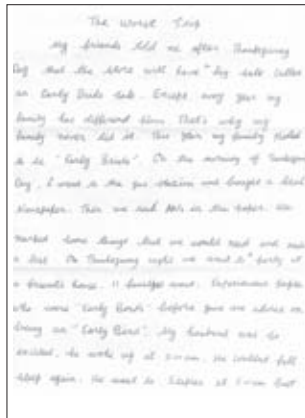 The Worst Trip
My friends told me after Thanksgiving
Day that the store will have big sale called
an Early Birds sale. Except every year my
family has different plans. That's why my
family never did it. This year my family
to be "Early Birds". On the morning of Thanksgiving
Day, I went to the gas station and bought a local
Newspaper. Then we read Ads in the paper. We
marked some things that we would need and made
a list. On Thanksgiving night we went to party at
a friend's house. 11 families went. Experienced people
who were "Early Birds" before gave me advice on
being an "Early Bird". My husband was so
excited, he woke up at He couldn't fall
sleep again. He went to at